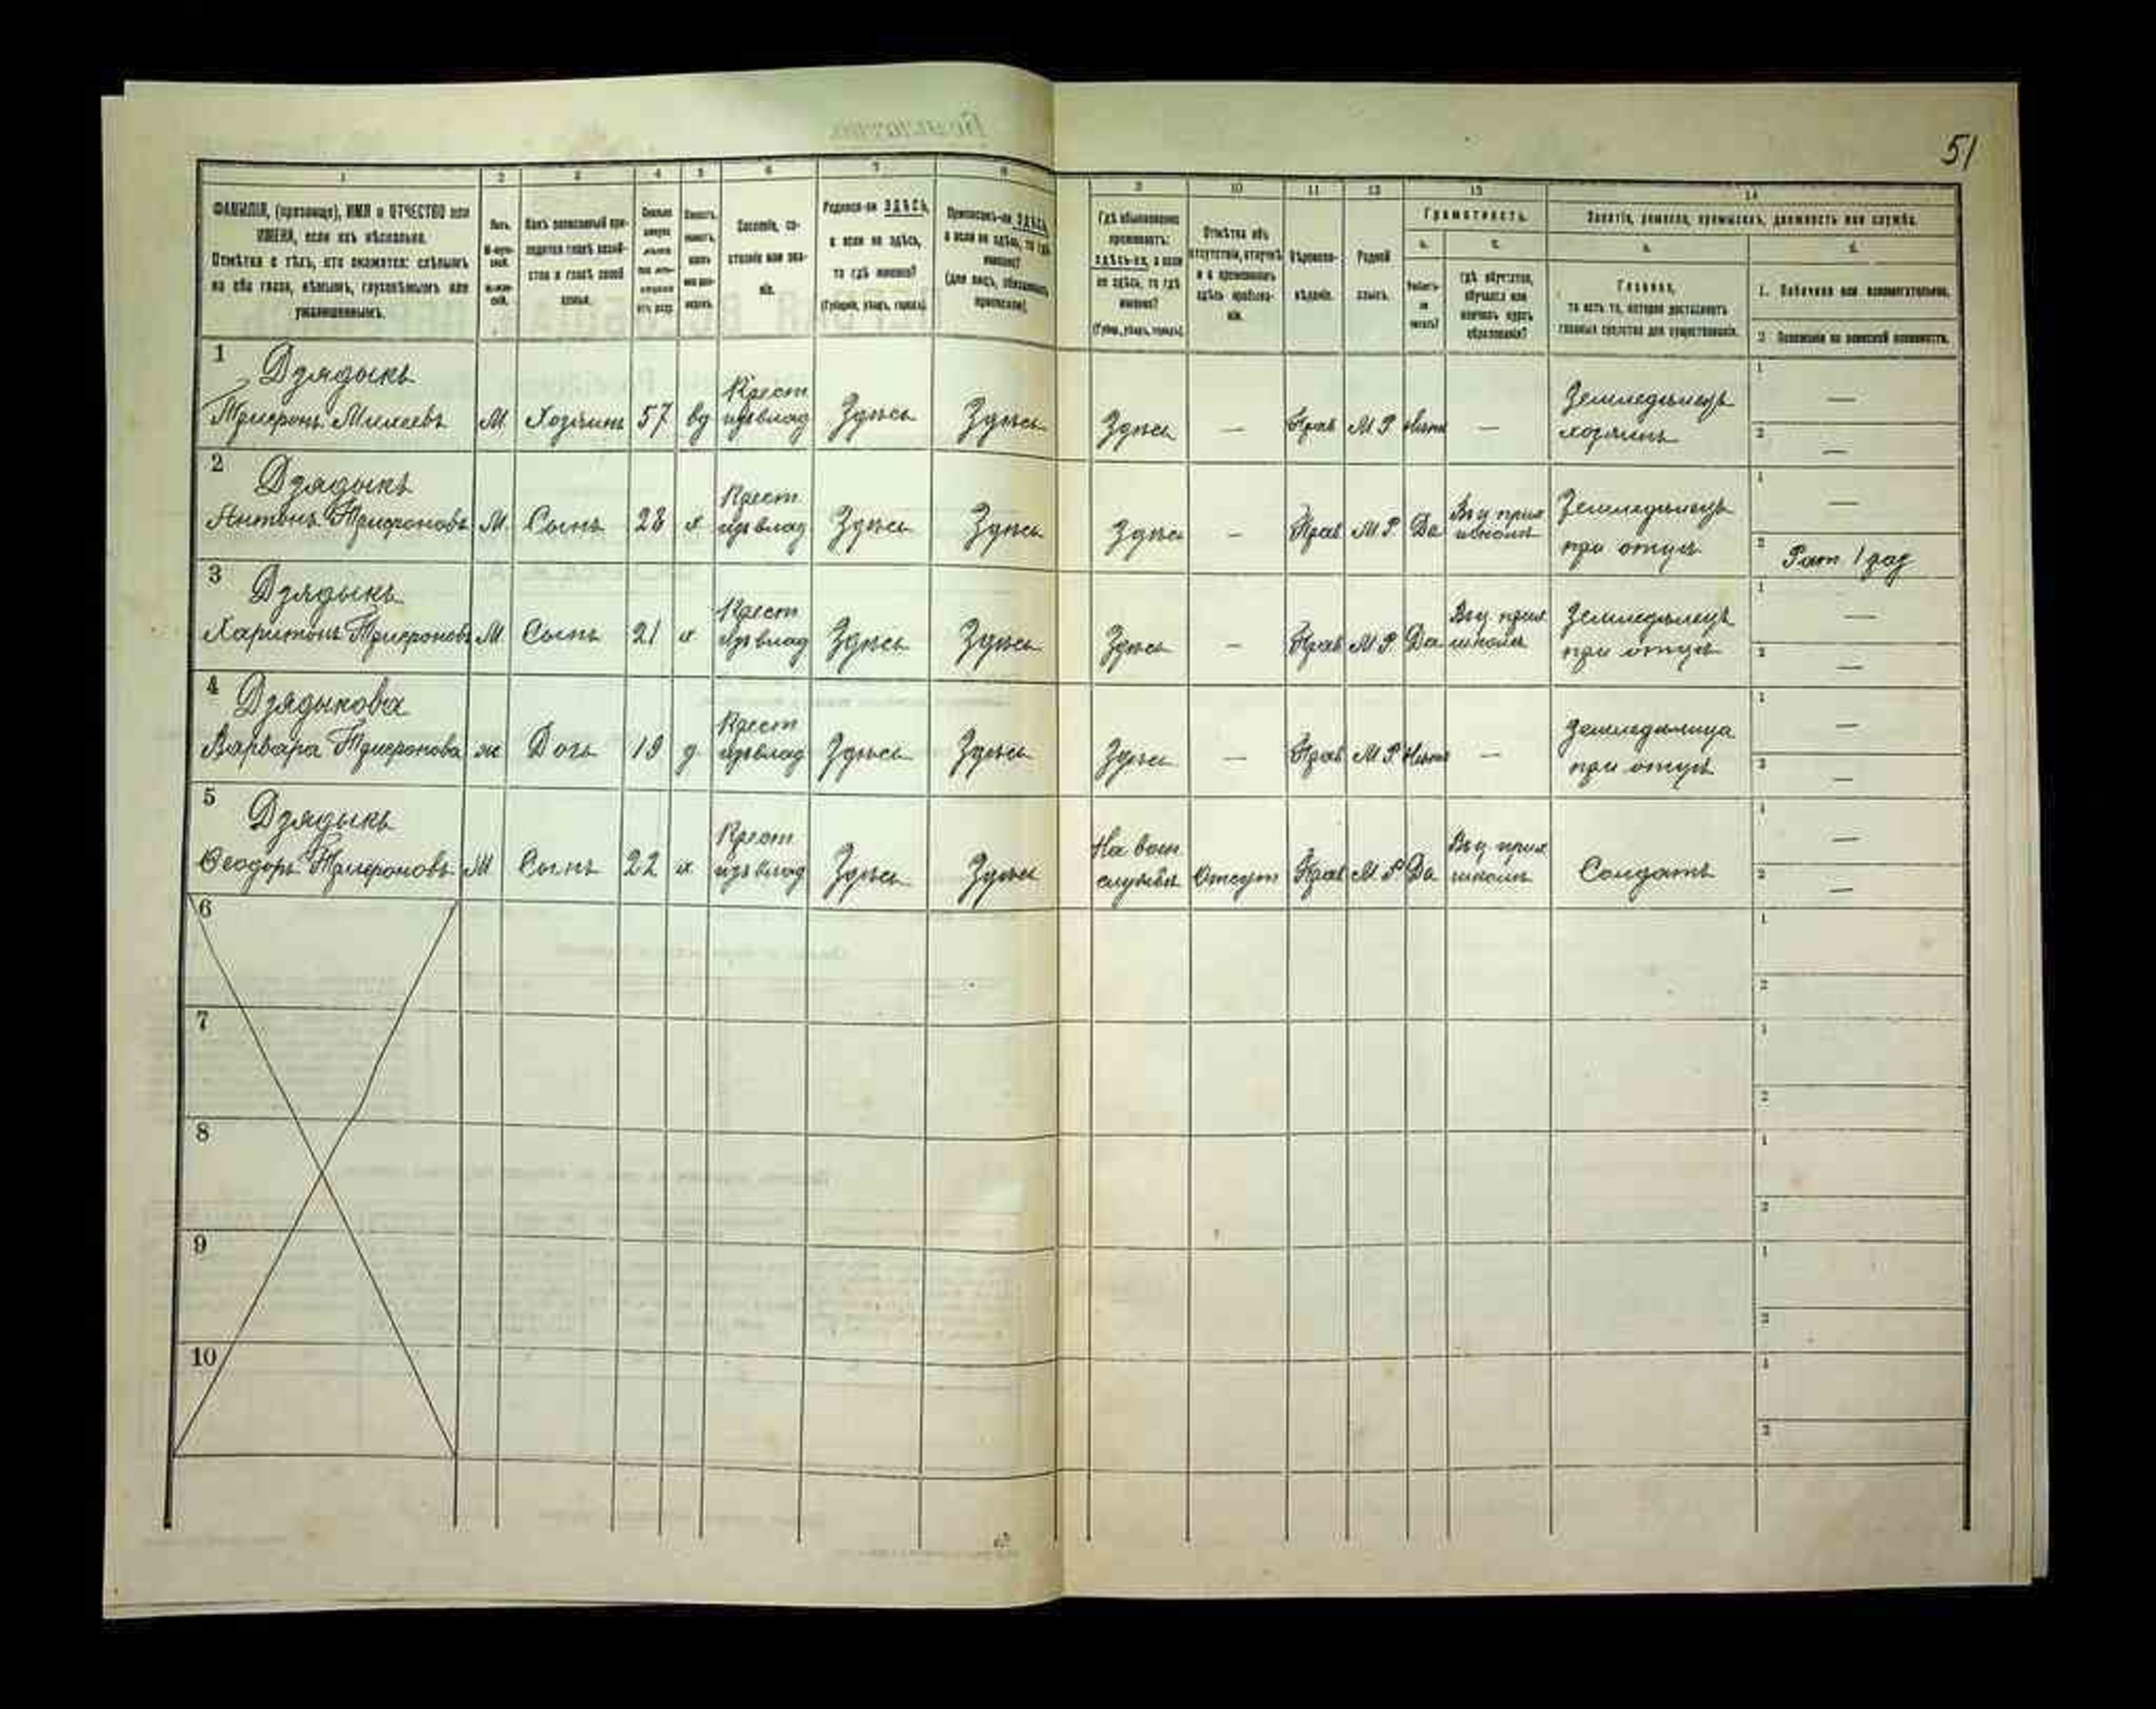 51
1 2 3 4 5 6 7 8 9 10 11 12 13 14
ФАМИЛІЯ, (прозвище), ИМЯ и ОТЧЕСТВО или
ИМЕНА, если ихъ нѣсколько.
Отмѣтка о тѣхъ, кто окажется: слѣпымъ
на оба глаза, нѣмымъ, глухонѣмымъ или
умалишеннымъ.
Полъ.
Какъ записанный при-
ходится главѣ хозяй-
ства и главѣ своей
семьи.
Сословіе, со-
стояніе или зва-
ніе.
Родился-ли ЗДѢСЬ,
а если не здѣсь,
то гдѣ именно?
(Губернія, уѣздъ, городъ).
Приписанъ-ли ЗДѢСЬ,
а если не здѣсь, то гдѣ
именно?
(для лицъ, обязанныхъ
припискою).
Гдѣ обыкновенно
проживаетъ:
здѣсь-ли, а если
не здѣсь, то гдѣ
именно?
(Губер., уѣздъ, городъ).
Отмѣтка объ
отсутствіи, отлучкѣ
и о временномъ
здѣсь пребыва-
ніи.
Вѣроиспо-
вѣданіе.
Родной
языкъ.
Грамотность.
а. б.
Умѣетъ-
ли
читать?
гдѣ обучается,
обучался или
кончилъ курсъ
образованія?
Занятіе, ремесло, промыселъ, должность или служба.
а. б.
Главное,
то есть то, которое доставляетъ
главныя средства для существованія.
1. Побочное или вспомогательное.
2. Положеніе по воинской повинности.
1 Дзядыкъ
Трифонъ Михеевъ М. Хозяинъ 57 вд Крест изъ влад Здѣсь Здѣсь Здѣсь — Прав М Р Нѣтъ — Земледѣлецъ хозяинъ 1 — 2 —
2 Дзядыкъ
Антонъ Трифоновъ М. Сынъ 28 х Крест изъ влад Здѣсь Здѣсь Здѣсь — Прав М Р Да Въ ц прих школѣ Земледѣлецъ при отцѣ 1 — 2 Рат 1 раз
3 Дзядыкъ
Харитонъ Трифоновъ М Сынъ 21 х Крест изъ влад Здѣсь Здѣсь Здѣсь — Прав М Р Да Въ ц прих школѣ Земледѣлецъ при отцѣ 1 — 2 —
4 Дзядыкова
Варвара Трифонова ж Дочь 19 д Крест изъ влад Здѣсь Здѣсь Здѣсь — Прав М Р Нѣтъ — Земледѣлица при отцѣ 1 — 2 —
5 Дзядыкъ
Ѳеодоръ Трифоновъ М Сынъ 22 х Крест изъ влад Здѣсь Здѣсь На воен службѣ Отсут Прав М Р Да Въ ц прих школѣ Солдатъ 1 — 2 —
6 1 2
7 1 2
8 1 2
9 1 2
10 1 2